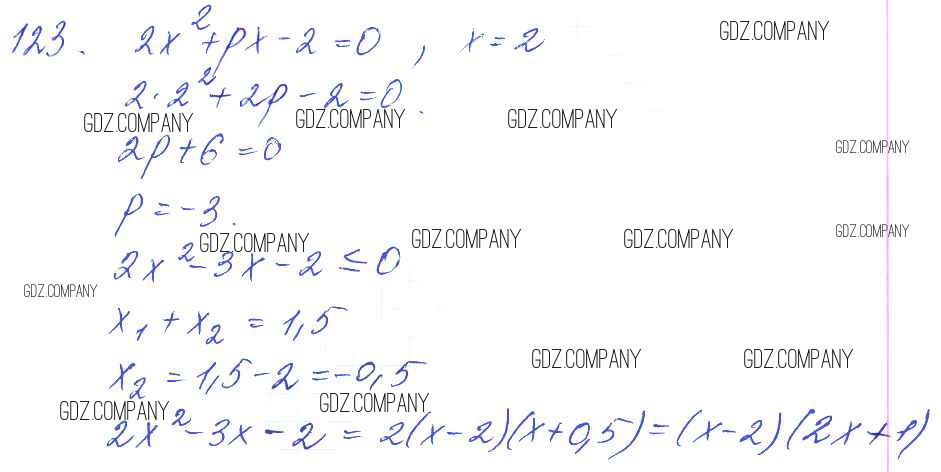 123. 2x² + px - 2 = 0, x = 2 GDZ.COMPANY
2 · 2² + 2p - 2 = 0.
GDZ.COMPANY GDZ.COMPANY GDZ.COMPANY
2p + 6 = 0 GDZ.COMPANY
p = -3.
GDZ.COMPANY GDZ.COMPANY GDZ.COMPANY GDZ.COMPANY
2x² - 3x - 2 ≤ 0
GDZ.COMPANY
x₁ + x₂ = 1,5
GDZ.COMPANY GDZ.COMPANY
x₂ = 1,5 - 2 = -0,5
GDZ.COMPANY GDZ.COMPANY
2x² - 3x - 2 = 2(x-2)(x+0,5) = (x-2)(2x+1)